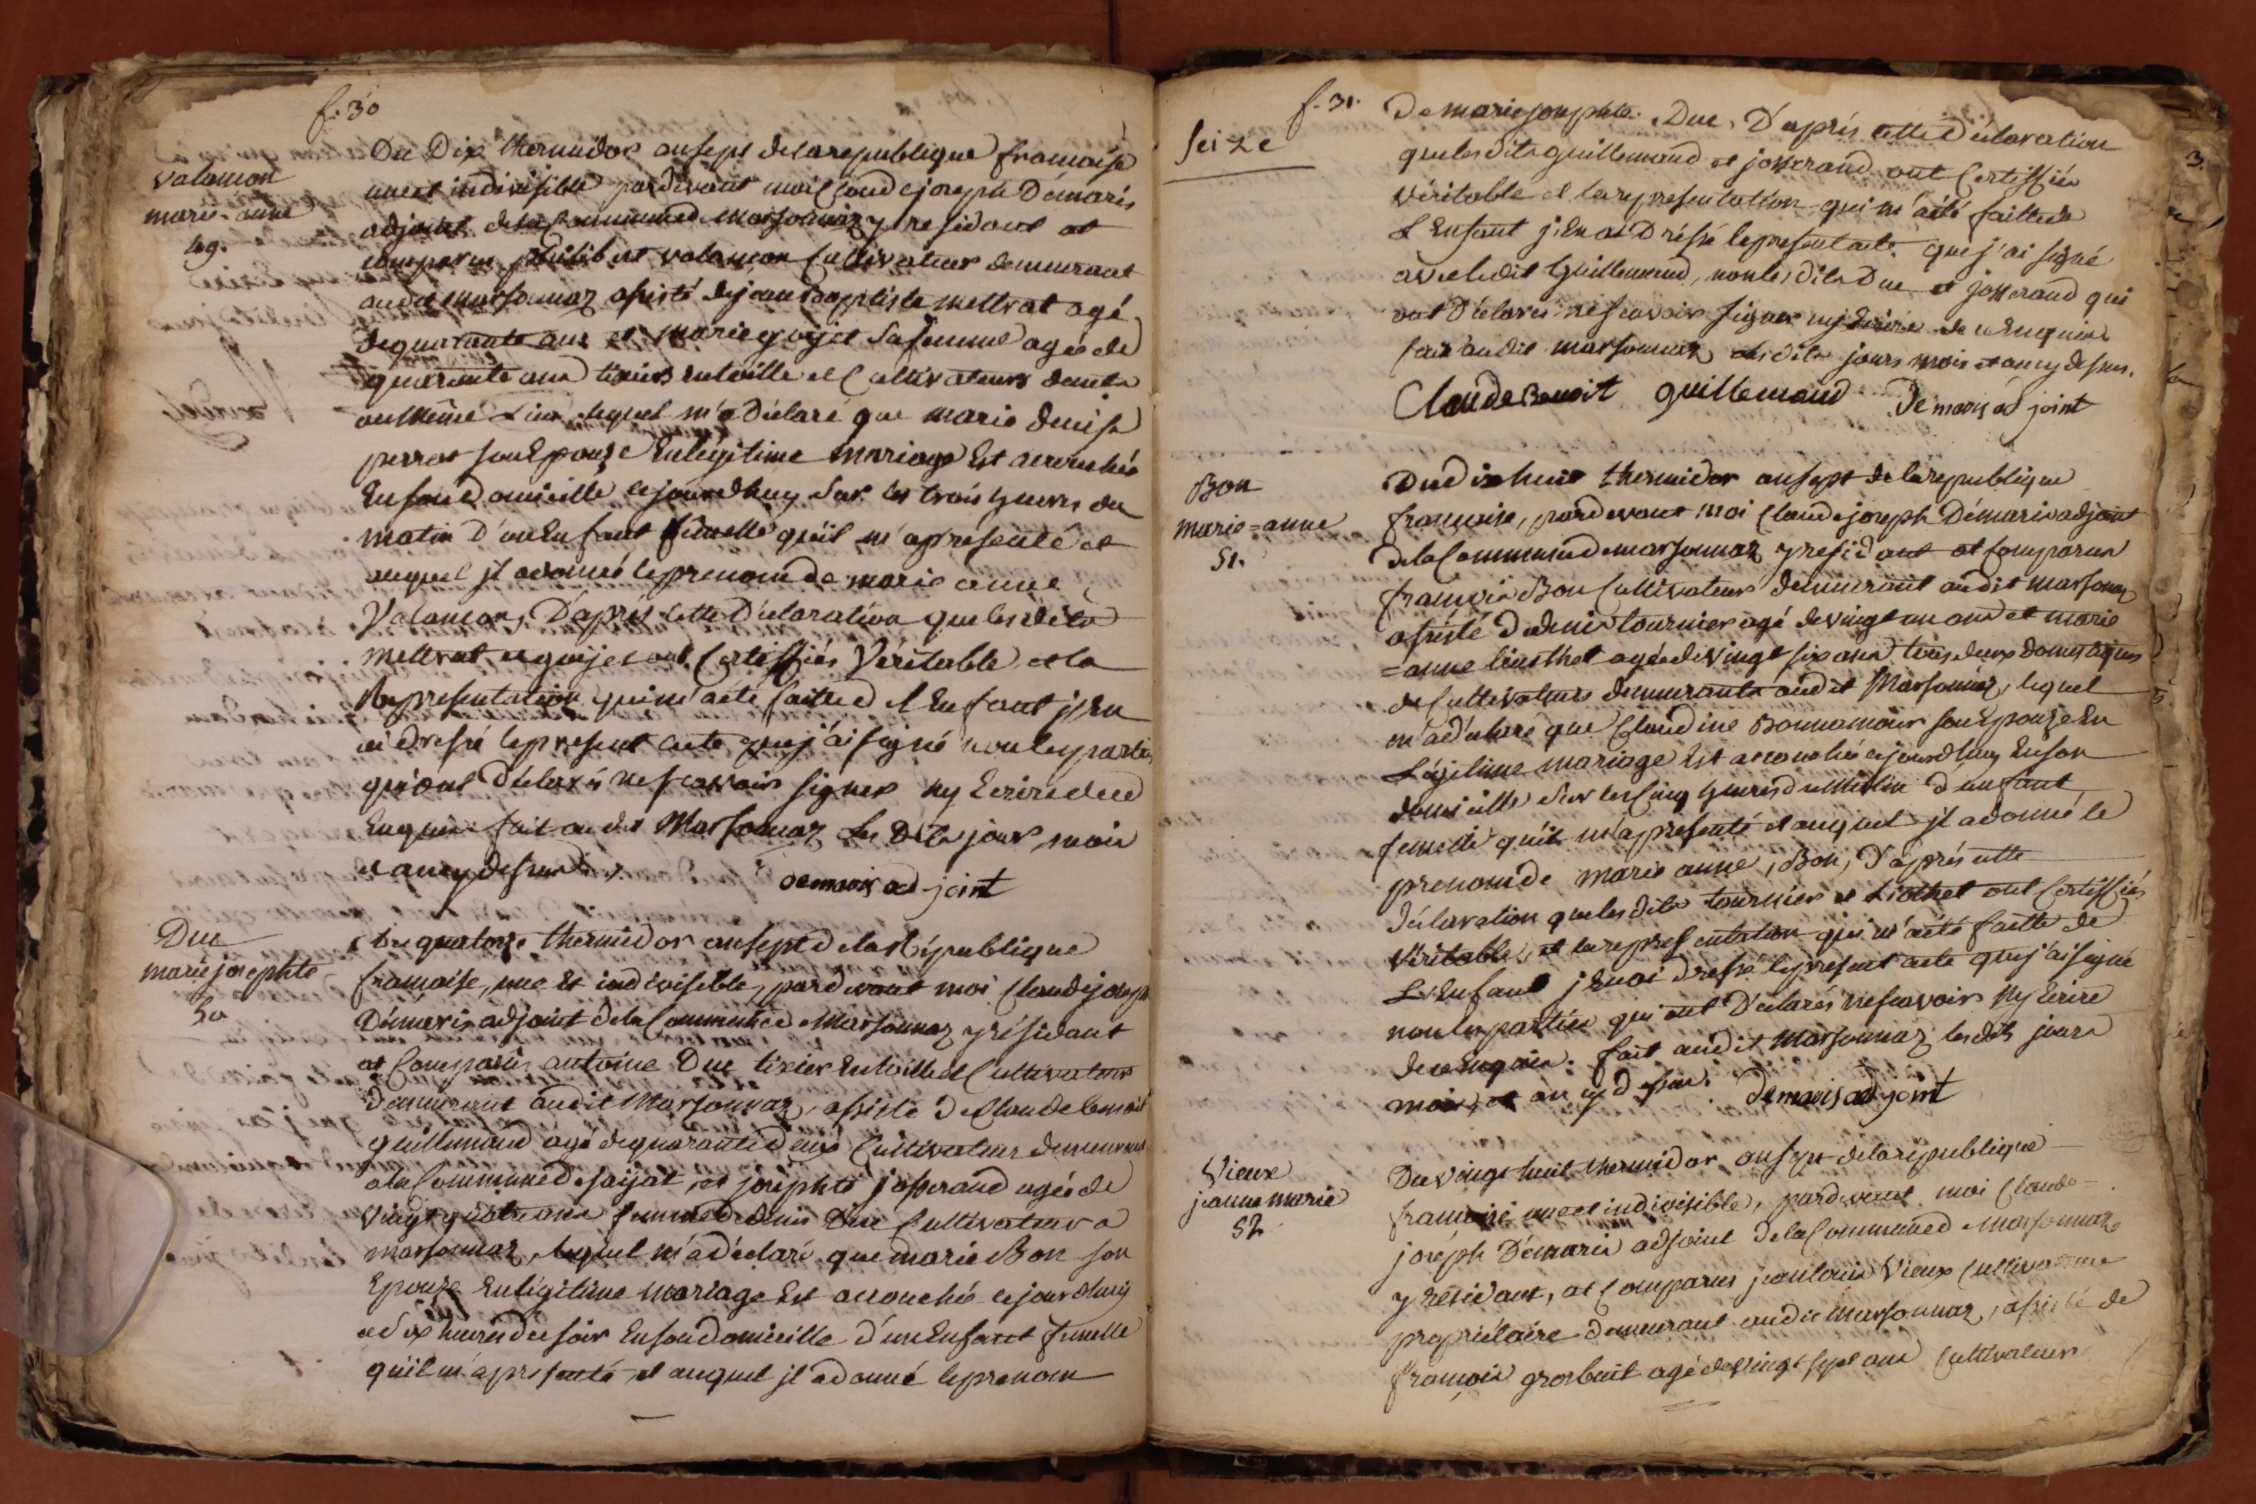 f. 30
valancon
marie-anne
49.
Du Dix thermidor an sept de la republique francaise
une et indivisible pardevant moi Claude joseph Démaris
adjoint de la Commune de Marsonnaz y residant est
comparu philibert valancon Cultivateur demeurant
audit Marsonnaz assisté de jean baptiste mettrat agé
de quarante ans et marie goyet sa femme agée de
quarante ans tixiers entoille et Cultivateurs demts
au même Lieu lequel m'a Déclaré que marie denise
perrat son Epouze En légitime mariage Est accouchée
En son domicille cejourdhuy sur les trois heures du
matin D'un Enfant femelle qu'il m'a presenté et
auquel jl a donné le prenom de marie anne
Valancon, D'aprés cette Déclaration que les dits
Mettrat et goyet ont Certiffiés Véritable et la
Representation qui m'a été faitte d L'Enfant j'En
ai dressé le present acte que j'ai signé non les parties
qui ont Déclarés ne scavoir signer ny Ecrire de ce
Enquis fait audit Marsonnaz Les Dits jour, mois
et an cy dessus
Demaris adjoint
Duc
marie josephte
50
Du quatorze thermidor an sept de la République
francaise, une Et indivisible, pardevant moi Claude joseph
Démaris adjoint de la Commune de Marsonnaz y résidant
est Comparu antoine Duc tixier Entoille et Cultivateur
demeurant audit Marsonnaz, assisté de Claude benoit
guillemaud agé de quarante deux Cultivateur demeurant
a la Commune de saijat, et joséphte josserand agée de
Vingt quatre ans femme de denis Duc Cultivateur a
marsonnaz, lequel m'a déclaré que marie Bon son
Epouze En légitime mariage Est accouchée cejourdhuy
a dix heures du soir En son domicille d'un Enfant femelle
qu'il m'a presenté, et auquel jl a donné le prenom
f. 31.
seize
De marie josephte Duc, D'aprés cette Déclaration
que les dits guillemaud et josserand ont Certiffiés
Véritable et la representation qui m'a été faitte de
L'Enfant j'En ai Dréssé le present acte que j'ai signé
avec ledit Guillemaud, non les dits Duc et josserand qui
ont Déclarés ne scavoir signer ny Ecrire de ce Enquis
fait audit marsonnaz les dits jours mois et an cy dessus.
Claude Benoit guillemaud Demaris adjoint
Bon
marie=anne
51.
Du dix huit thermidor an sept de la republique
francaise, pardevant moi Claude joseph Démaris adjoint
de la Commune de marsonnaz y residant est Comparu
francois Bon Cultivateur demeurant audit marsonnaz
assisté de denis tournier agé de vingt un ans et marie
=anne liosthet agée de vingt six ans tous deux domestiques
de Cultivateurs demeurants audit Marsonnaz, lequel
m'a déclaré que Claudine Bonnamour son Epouze En
Légitime mariage Est accouchée cejourdhuy En son
domicille sur les Cinq heures du Matin d'un fant
femelle qu'il m'a presenté et auquel jl a donné le
prenom de marie anne, Bon, D'aprés cette
déclaration que les dits tournier et Liothet ont Certiffiés
Véritable, et la representation qui m'a été faitte de
L'Enfant j'En ai dressé le present acte que j'ai signé
non les parties qui ont Déclarés ne scavoir ny Ecrire
de ce Enquis. fait audit Marsonnaz les dits jours
mois, et an cy dessus. Demaris adjoint
Vieux
jeanne marie
52
Du vingt huit thermidor an sept de la république
francaise une et indivisible, pardevant moi Claude=
joséph Démaris adjoint de la Commune de Marsonnaz
y résidant, est Comparu jean louis Vieux Cultivateur
propriétaire demeurant audit marsonnaz, assisté de
francois grosbuit agé de vingt sept ans Cultivateur